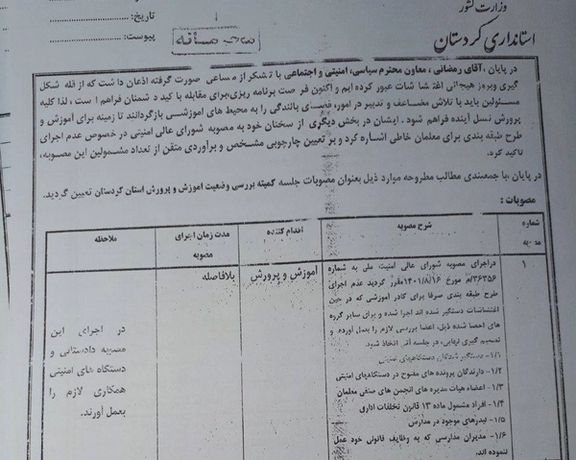 وزارت کشور
استانداری کردستان
تاریخ:
پیوست:
محرمانه
در پایان ،آقای رمضانی ، معاون محترم سیاسی، امنیتی و اجتماعی با تشکر از مساعی صورت گرفته اذعان داشت که از قله شکل
گیری وبروز هیجانی اغتشاشات عبور کرده ایم و اکنون فرصت برنامه ریزی،برای مقابله با کید دشمنان فراهم است ، لذا کلیه
مسئولین باید با تلاش مضاعف و تدبیر در امور، فضای بالندگی را به محیط های آموزشی بازگردانند تا زمینه برای آموزش و
پرورش نسل آینده فراهم شود . ایشان در بخش دیگری از سخنان خود به مصوبه شورای عالی امنیتی در خصوص عدم اجرای
طرح طبقه بندی برای معلمان خاطی اشاره کرد و بر تعیین چارچوبی مشخص و برآوردی متقن از تعداد مشمولین این مصوبه،
تاکید کرد.
در پایان ،با جمعبندی مطالب مطروحه موارد ذیل بعنوان مصوبات جلسه کمیته بررسی وضعیت آموزش و پرورش استان کردستان تعیین گردید.
مصوبات :
شماره مصوبه
شرح مصوبه
اقدام کننده
مدت زمان اجرای مصوبه
ملاحظه
۱
دراجرای مصوبه شورای عالی امنیت ملی به شماره
۳۶۳۵۶/م مورخ ۱۴۰۱/۸/۱۶مقرر گردید عدم اجرای
طرح طبقه بندی صرفا برای کادر آموزشی که در حین
اغتشاشات دستگیر شده اند اجرا شده و برای سایر گروه
های احصا شده ذیل، اعضا بررسی لازم را بعمل آورده و
تصمیم گیری نهایی، در جلسه آتی اتخاذ شود.
۱/۱- دستگیر شدگان دستگاههای امنیتی
۱/۲- دارندگان پرونده های مفتوح در دستگاههای امنیتی
۱/۳- اعضاء هیات مدیره های انجمن های صنفی معلمان
۱/۴- افراد مشمول ماده ۱۳ قانون تخلفات اداری
۱/۵- لیدرهای موجود در مدارس
۱/۶- مدیران مدارسی که به وظایف قانونی خود عمل
ننموده اند.
آموزش و پرورش
بلافاصله
در اجرای این
مصوبه دادستانی و
دستگاه های امنیتی
همکاری لازم را
بعمل آورند.